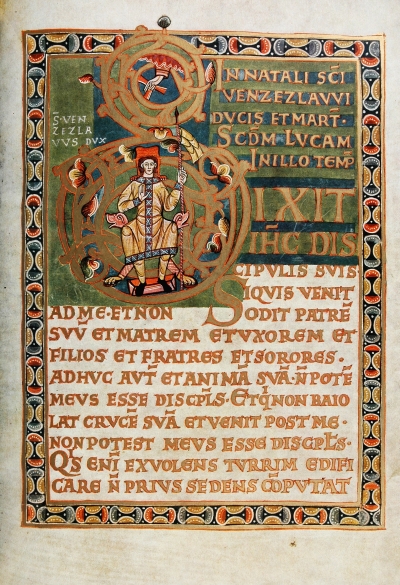 S̄·VEN
ZEZLA
VVS DVX
IN NATALI SC̄I
VENZEZLAVVI
DVCIS ET MART·
SCD̄M LVCAM
IN ILLO TEMP̄
DIXIT
IH̄C DIS
CIPVLIS SVIS·
SIQVIS VENIT
AD ME·ET NON ODIT PATRĒ
SVV̄ ET MATREM ET VXOREM ET
FILIOS ET FRATRES ET SORORES·
ADHVC AVT̄ ET ANIMĀ SVĀ·N̄ POTĒ
MEVS ESSE DISCPL̄S·ET Q̄ NON BAIO
LAT CRVCĒ SVĀ ET VENIT POST ME·
NON POTEST MEVS ESSE DISCPL̄S·
QS̄ ENĪ EX VOLENS TVRRIM EDIFI
CARE N̄ PRIVS SEDENS CŌPVTAT